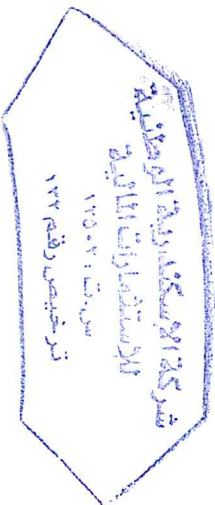 شركة الاسكندرية الوطنية
للإستثمارات المالية
س.ت : ١٢٥٠٢
ترخيص رقم ١٢٢